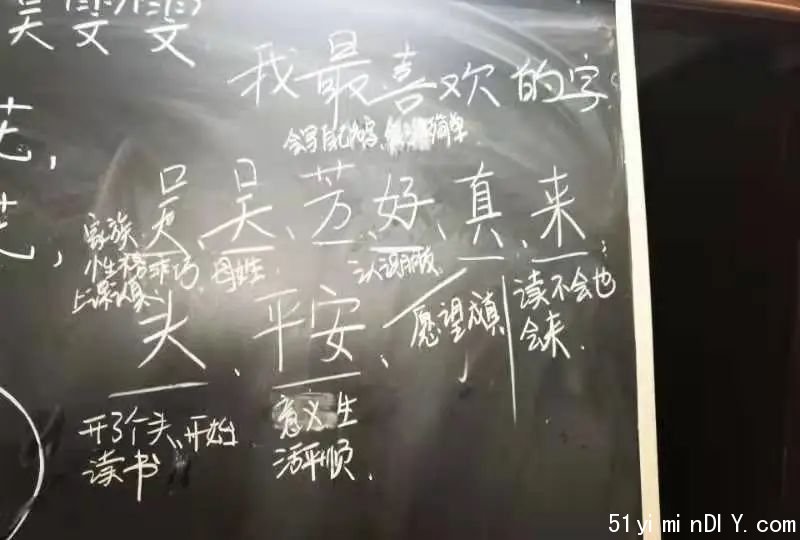 吴雯雯
我最喜欢的字
会写自己的名 简单
芳,
吴、吴、芳、好、真、来;
家族
小性格乖巧, 母姓. 认识朋友
上课认真
头、平安、愿望成真 读不会也
会来.
开了个头、开始
读书
意义生
活平顺.
51yiminDIY.com